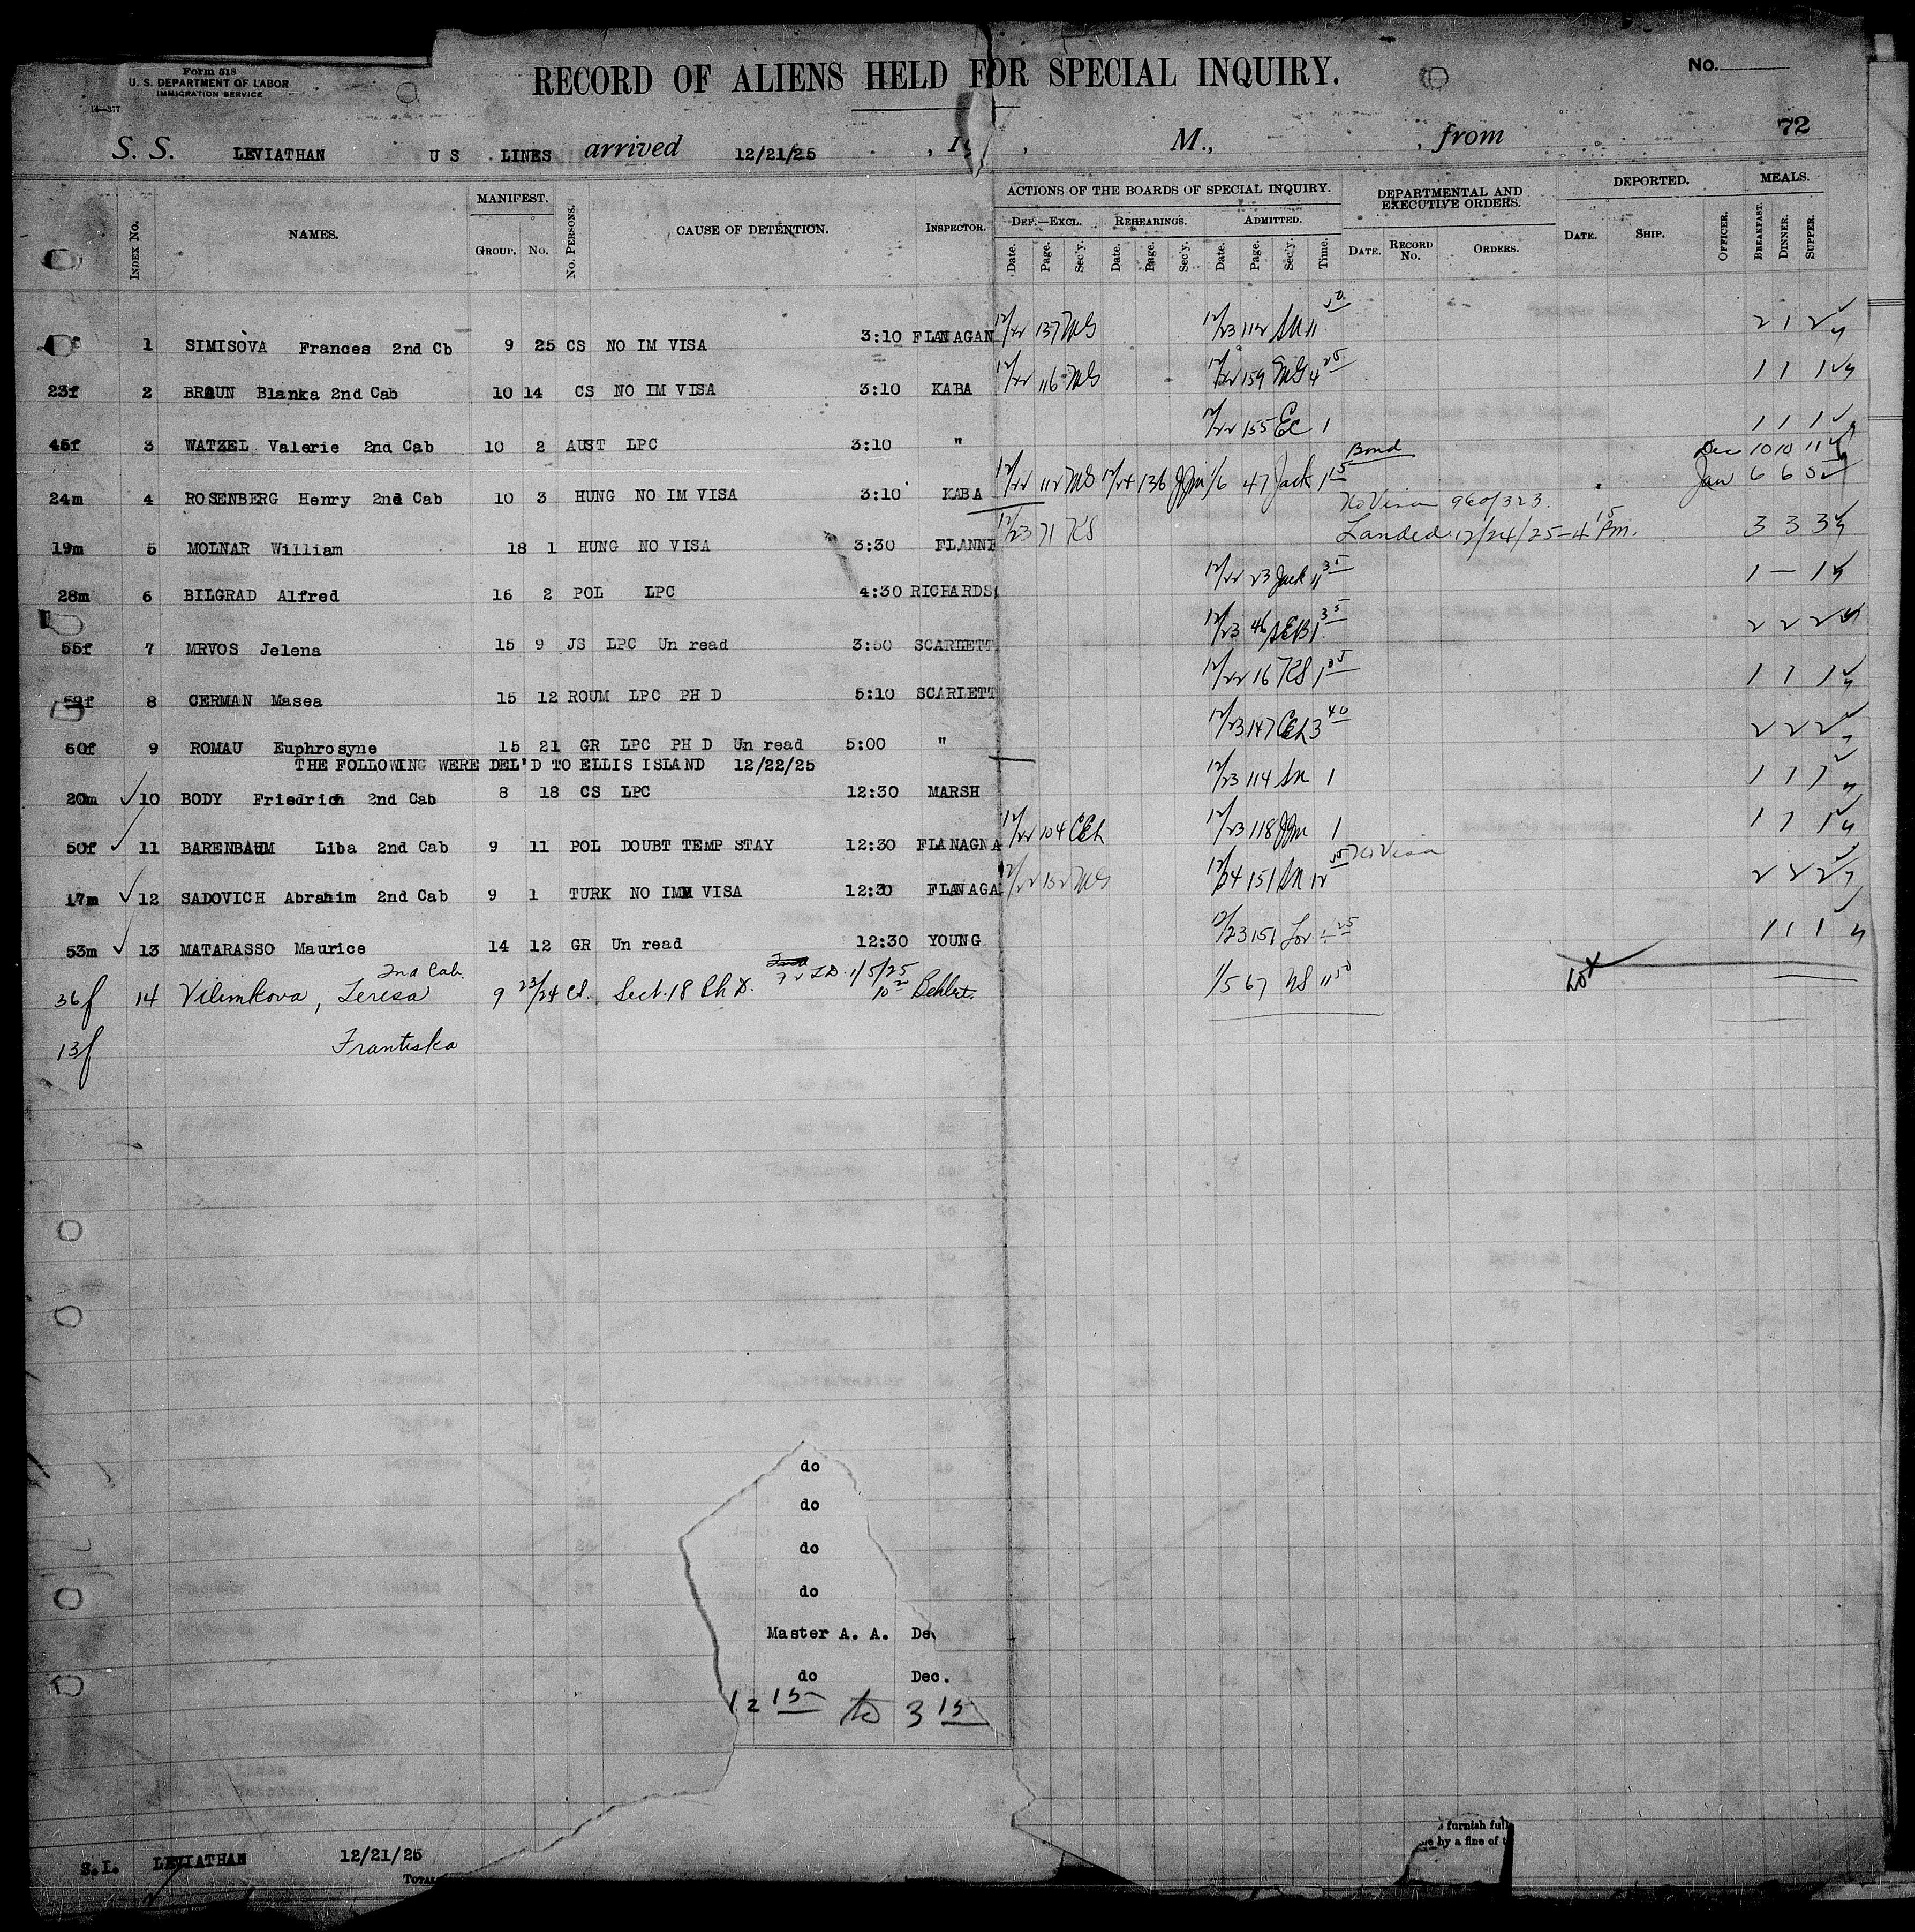 Form 518
U. S. DEPARTMENT OF LABOR
IMMIGRATION SERVICE
14—377
RECORD OF ALIENS HELD FOR SPECIAL INQUIRY.
No.
72
S. S. LEVIATHAN U S LINES arrived 12/21/25 , M., , from
INDEX No. NAMES. MANIFEST. GROUP. No. No. PERSONS. CAUSE OF DETENTION. INSPECTOR. ACTIONS OF THE BOARDS OF SPECIAL INQUIRY. DEF.—EXCL. Date. Page. Sec'y. REHEARINGS. Date. Page. Sec'y. ADMITTED. Date. Page. Sec'y. Time. DEPARTMENTAL AND EXECUTIVE ORDERS. DATE. RECORD No. ORDERS. DEPORTED. DATE. SHIP. OFFICER. MEALS. BREAKFAST. DINNER. SUPPER.
1 SIMISOVA Frances 2nd Cb 9 25 CS NO IM VISA 3:10 FLANAGAN 12/22 137 MG 12/23 112 SN 11 50 2 1 2
23f 2 BRAUN Blanka 2nd Cab 10 14 CS NO IM VISA 3:10 KABA 12/22 116 MG 12/22 159 MG 4 25 1 1 1
45f 3 WATZEL Valerie 2nd Cab 10 2 AUST LPC 3:10 " 12/22 155 EC 1 1 1 1
Bond Dec 10 10 11
24m 4 ROSENBERG Henry 2nd Cab 10 3 HUNG NO IM VISA 3:10 KABA 12/22 112 MS 12/24 136 JJm 1/6 47 Jack 1 15 Jan 6 6 5
No Visa
19m 5 MOLNAR William 18 1 HUNG NO VISA 3:30 FLANNE 12/23 71 KS Landed 12/24/25-4 15 Pm. 3 3 3
28m 6 BILGRAD Alfred 16 2 POL LPC 4:30 RICHARDS 12/22 23 Jack 11 35 1 — 1
55f 7 MRVOS Jelena 15 9 JS LPC Un read 3:50 SCARLETT 12/23 46 SEB 1 35 2 2 2
8 CERMAN Masea 15 12 ROUM LPC PH D 5:10 SCARLETT 12/22 16 KS 1 05 1 1 1
60f 9 ROMAU Euphrosyne 15 21 GR LPC PH D Un read 5:00 " 12/23 147 CEh 3 40 2 2 2
THE FOLLOWING WERE DEL'D TO ELLIS ISLAND 12/22/25
20m 10 BODY Friedrich 2nd Cab 8 18 CS LPC 12:30 MARSH 12/23 114 SN 1 1 1 1
50f 11 BARENBAUM Liba 2nd Cab 9 11 POL DOUBT TEMP STAY 12:30 FLANAGNA 12/22 104 CEh 12/23 118 JJm 1 1 1 1
No Visa
17m 12 SADOVICH Abrahim 2nd Cab 9 1 TURK NO IMM VISA 12:30 FLANAGA 12/22 132 MG 12/24 151 SN 12 2 2 2
53m 13 MATARASSO Maurice 14 12 GR Un read 12:30 YOUNG 12/23 151 1 1 1
2nd Cab.
36f 14 Vilimkova, Teresa 9 23/24 CS. Sect. 18 Ph D. 1/5/25 10 20 1/5 67 NS 11 50
13f Frantiska
do
do
do
do
Master A. A. De
do Dec.
12 15 to 3 15
furnish full
by a fine of
S.I. LEVIATHAN 12/21/25
TOTAL